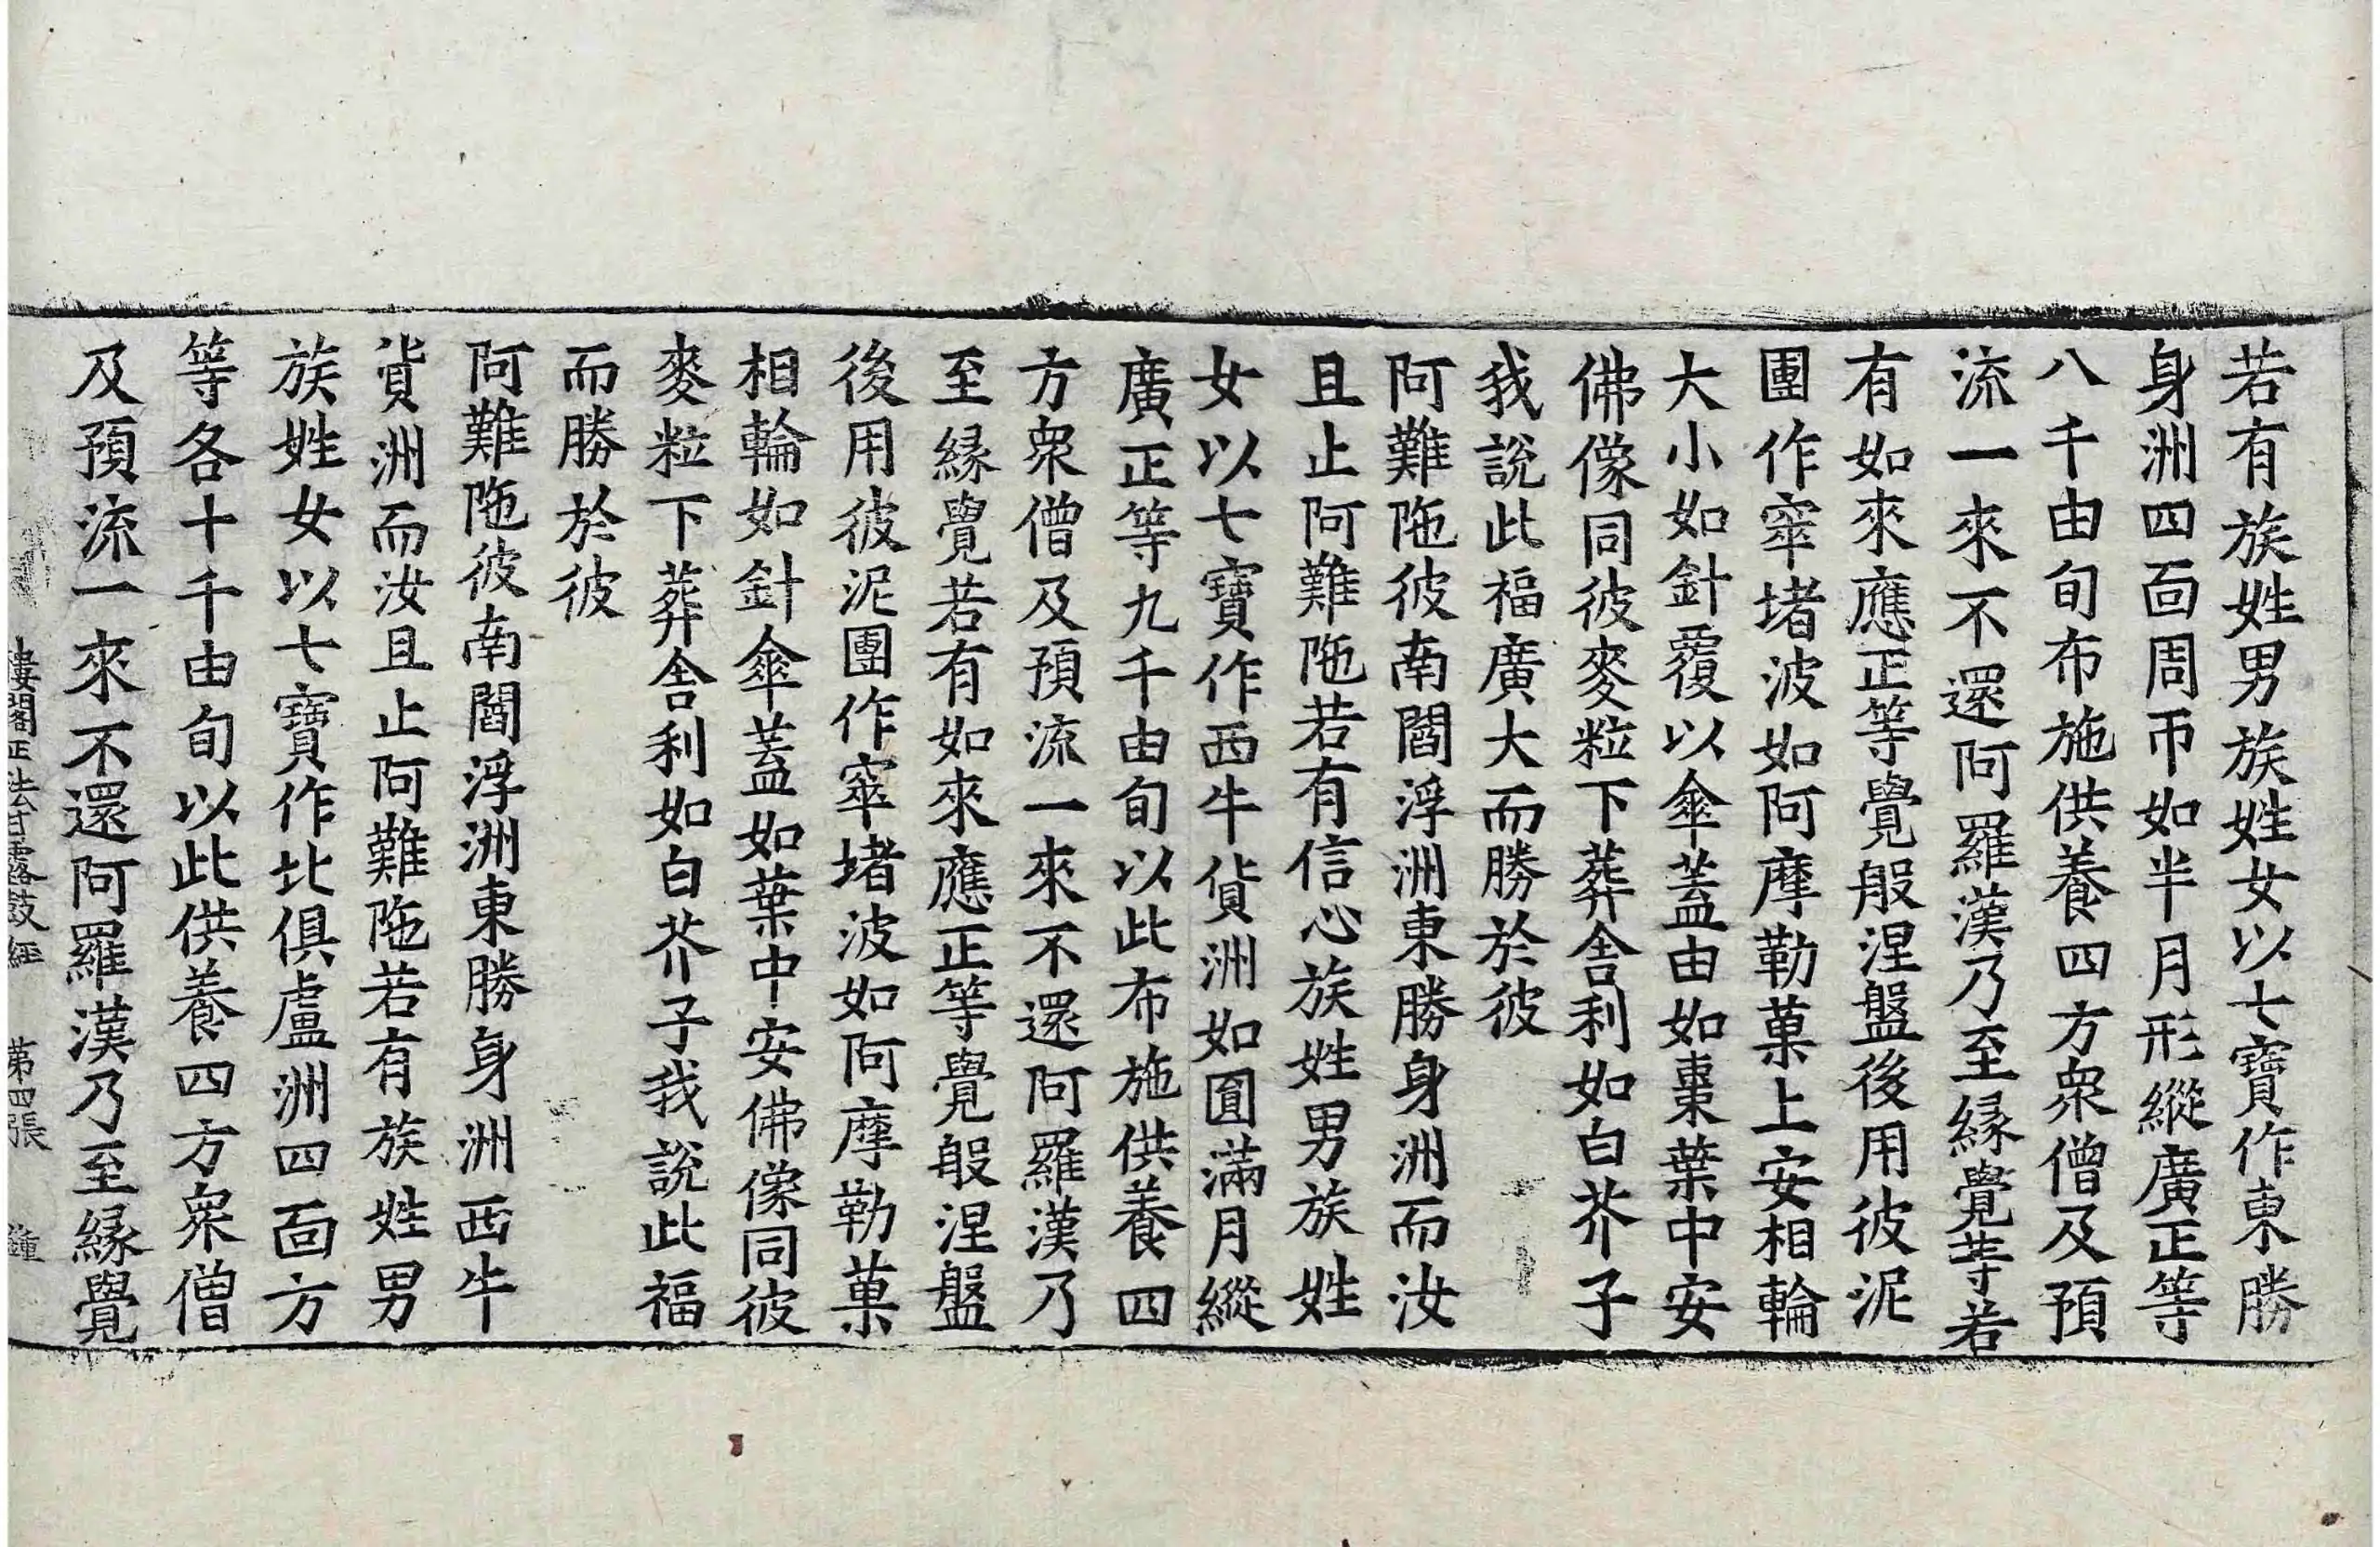 若有族姓男族姓女以七寶作東勝
身洲四面周帀如半月形縱廣正等
八千由旬布施供養四方衆僧及預
流一來不還阿羅漢乃至緣覺等若
有如來應正等覺般涅盤後用彼泥
團作窣堵波如阿摩勒菓上安相輪
大小如針覆以傘蓋由如棗葉中安
佛像同彼麥粒下葬舍利如白芥子
我説此福廣大而勝於彼
阿難陁彼南閻浮洲東勝身洲而汝
且止阿難陁若有信心族姓男族姓
女以七寶作西牛貨洲如圓滿月縱
廣正等九千由旬以此布施供養四
方衆僧及預流一來不還阿羅漢乃
至緣覺若有如來應正等覺般涅盤
後用彼泥團作窣堵波如阿摩勒菓
相輪如針傘蓋如葉中安佛像同彼
麥粒下葬舍利如白芥子我説此福
而勝於彼
阿難陁彼南閻浮洲東勝身洲西牛
貨洲而汝且止阿難陁若有族姓男
族姓女以七寶作北俱盧洲四面方
等各十千由旬以此供養四方衆僧
及預流一來不還阿羅漢乃至緣覺
樓閣正法甘露鼓經 第四張 鐘